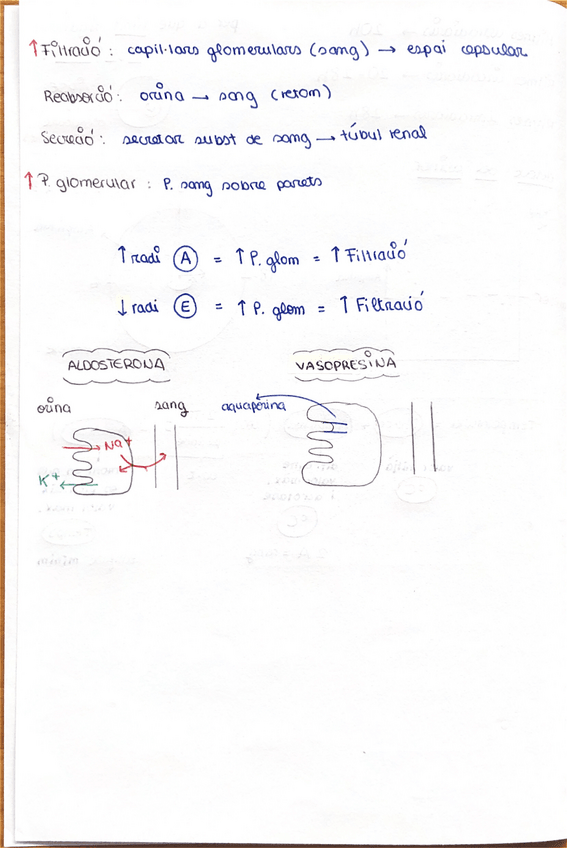 ↑ Filtració: capil·lars glomerulars (sang) → espai capsular
Reabsorció: orina → sang (retorn)
Secreció: secretar subst de sang → túbul renal
↑ P. glomerular: P. sang sobre parets
↑ radi (A) = ↑ P. glom = ↑ Filtració
↓ radi (E) = ↑ P. glom = ↑ Filtració
ALDOSTERONA
VASOPRESINA
orina
sang
aquaporina
Na+
K+